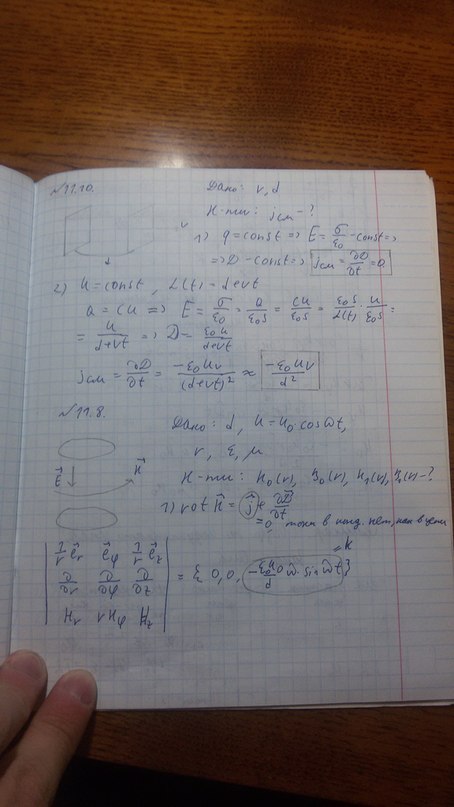 №11.10.
Дано: v, d
Н-ти: jсм - ?
1) q = const => E = σ/ε₀ - const =>
=> D - const => jсм = ∂D/∂t = 0
2) U = const, L(t) = d+vt
Q = CU => E = σ/ε₀ = Q/ε₀S = CU/ε₀S = ε₀S/L(t) · U/ε₀S =
= U/d+vt => D = ε₀U/d+vt
jсм = ∂D/∂t = -ε₀Uv/(d+vt)² ≈ -ε₀Uv/d²
№11.8.
Дано: d, U = U₀·cosωt,
r, ε, μ
E⃗ H⃗
1) rot H⃗ = j⃗ + ∂D⃗/∂t
= 0, тока в конд. нет, как в цепи
= k
| 1/r e⃗r e⃗φ 1/r e⃗z |
| ∂/∂r ∂/∂φ ∂/∂z | = { 0, 0, -ε₀U₀/d ω·sinωt }
| Hr rHφ Hz |